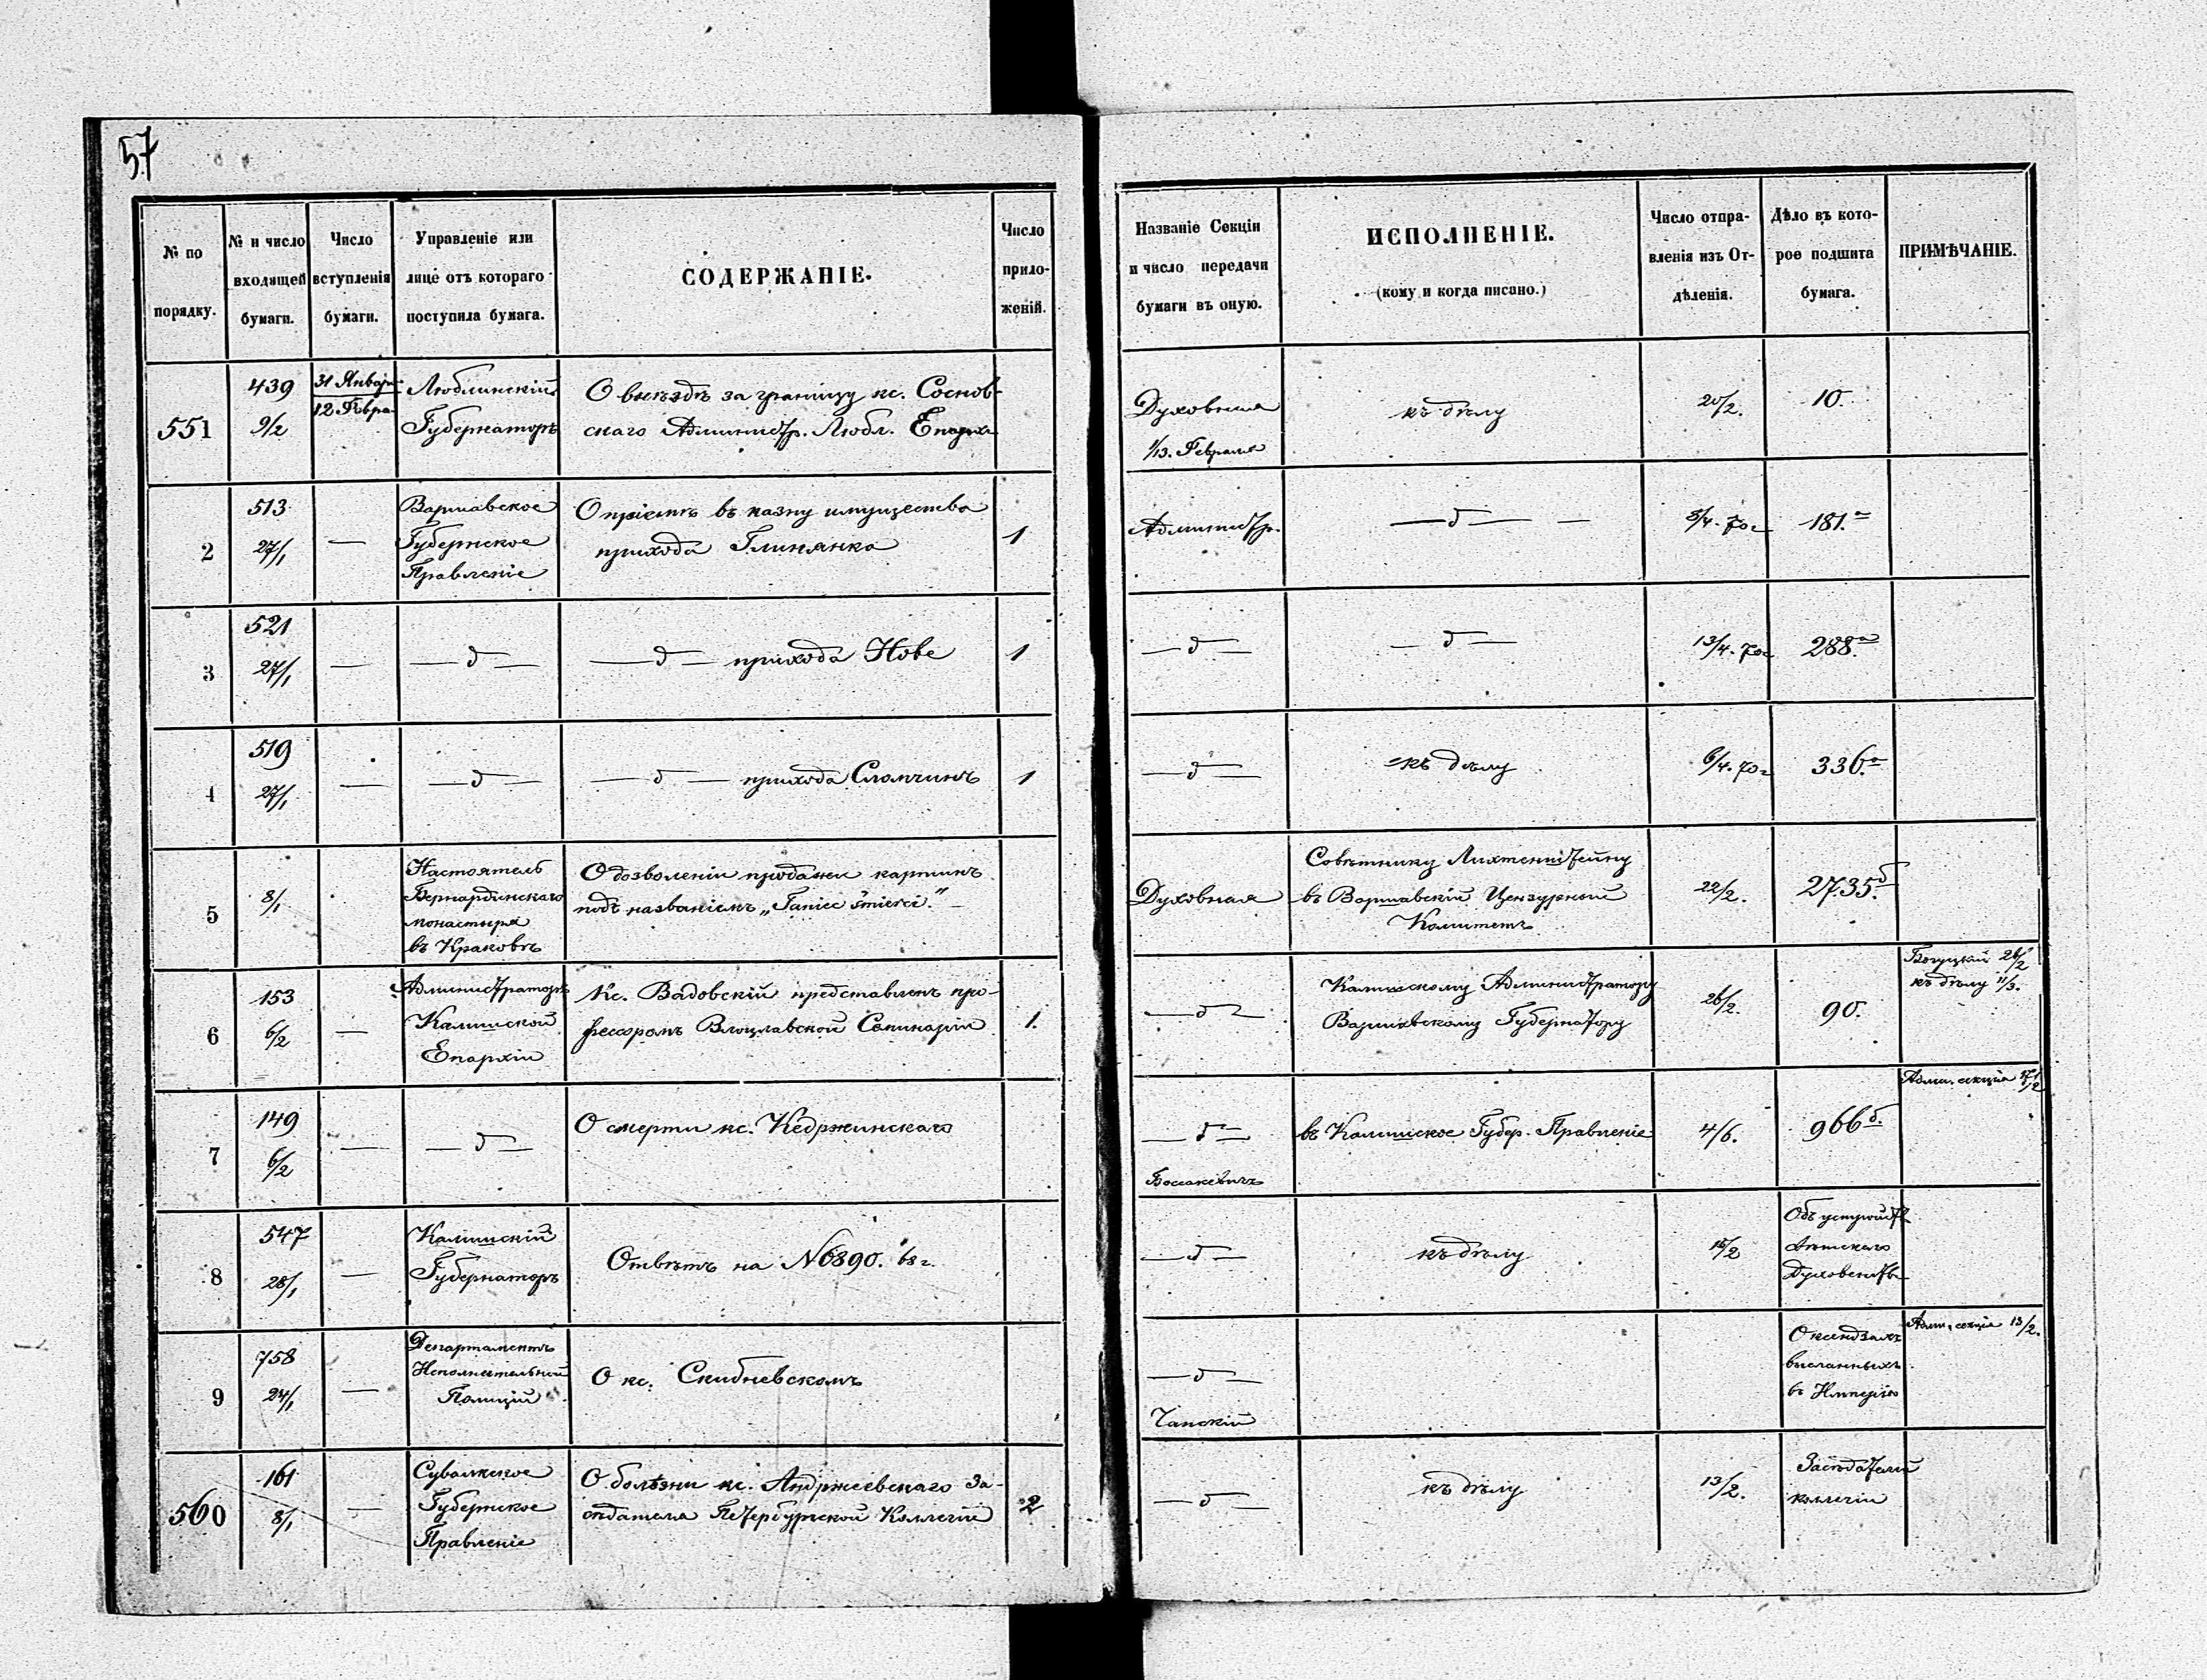 57
№ по порядку. № и число входящей бумаги. Число вступленія бумаги. Управленіе или лице отъ котораго поступила бумага. СОДЕРЖАНІЕ. Число приложеній.
Названіе Секціи и число передачи бумаги въ оную. ИСПОЛНЕНІЕ. (кому и когда писано.) Число отправленія изъ Отдѣленія. Дѣло въ которое подшита бумага. ПРИМѢЧАНІЕ.
551
439
9/2
31 Январ
12 Февра
Люблинскій
Губернаторъ
О выѣздѣ за границу кс. Соснов-
скаго Администр. Любл. Епарх
Духовная
1/13. Февраля
къ дѣлу
20/2.
10.
2
513
27/1
—
Варшавское
Губернское
Правленіе
О пріемѣ въ казну имущества
прихода Глинянка
1
Администр.
— д —
8/4. 70 г
181.а
3
521
27/1
—
— д —
— д — прихода Нове
1
— д —
— д —
13/4. 70 г
288.а
4
519
27/1
—
— д —
— д — прихода Сломчинъ
1
— д —
къ дѣлу
6/4. 70 г
336.а
5
8/1
Настоятель
Бернардинскаго
монастыря
въ Краковѣ
О дозволеніи продажи картинъ
подъ названіемъ „Taniec śmierci.“
Духовная
Совѣтнику Лихтенштейну
въ Варшавскій Цензурный
Комитетъ
22/2.
2735.б
6
153
6/2
—
Администраторъ
Калишской
Епархіи
Кс. Вадовскій представленъ про-
фессоромъ Влоцлавской Семинаріи
1.
— д —
Калишскому Администратору
Варшавскому Губернатору
26/2.
90.
26/2
къ дѣлу 11/3.
7
149
6/2
—
— д —
О смерти кс. Кедржинскаго
— д —
Боссакевичъ
въ Калишское Губер. Правленіе
4/6.
966 б.
Адми. секція 17/2
8
547
28/1
—
Калишскій
Губернаторъ
Отвѣтъ на N6890. 68 г.
— д —
къ дѣлу
15/2
Объ устройст
Духовенства
9
758
24/1
—
Департаментъ
Исполнительной
Полиціи
О кс. Скибневскомъ
— д —
Чапскій
О ксендзахъ
высланныхъ
въ Имперію
Адми. секція 13/2.
560
161
8/1
—
Сувалкское
Губернское
Правленіе
О болѣзни кс. Андржеевскаго За-
сѣдателя Петербургской Коллегіи
2
— д —
къ дѣлу
13/2.
Засѣдатели
коллегіи